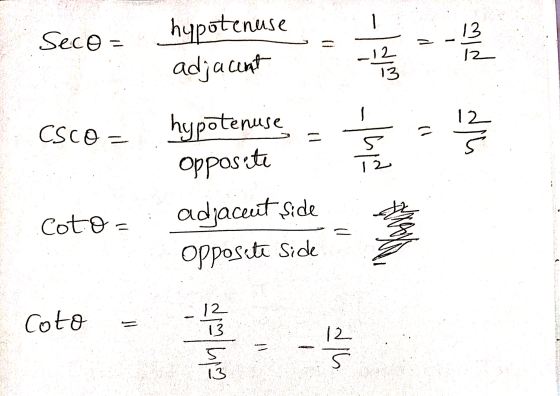 Secθ = hypotenuse / adjacent = 1 / (-12/13) = -13/12
CSCθ = hypotenuse / opposite = 1 / (5/12) = 12/5
Cotθ = adjacent side / opposite side =
Cotθ = (-12/13) / (5/13) = -12/5